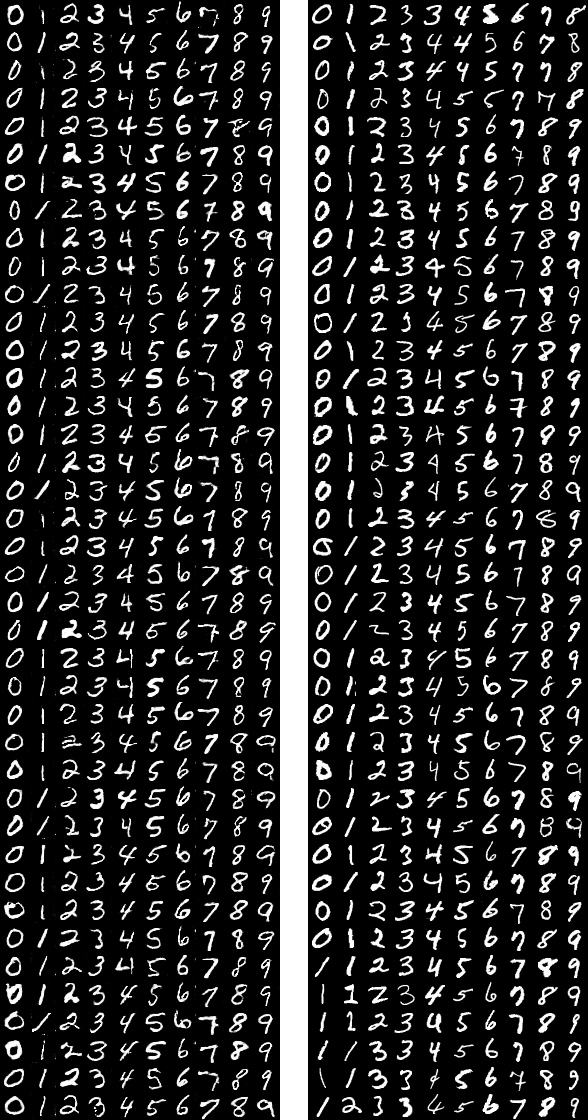 0 1 2 3 4 5 6 7 8 9
0 1 2 3 4 5 6 7 8 9
0 1 2 3 4 5 6 7 8 9
0 1 2 3 4 5 6 7 8 9
0 1 2 3 4 5 6 7 8 9
0 1 2 3 4 5 6 7 8 9
0 1 2 3 4 5 6 7 8 9
0 1 2 3 4 5 6 7 8 9
0 1 2 3 4 5 6 7 8 9
0 1 2 3 4 5 6 7 8 9
0 1 2 3 4 5 6 7 8 9
0 1 2 3 4 5 6 7 8 9
0 1 2 3 4 5 6 7 8 9
0 1 2 3 4 5 6 7 8 9
0 1 2 3 4 5 6 7 8 9
0 1 2 3 4 5 6 7 8 9
0 1 2 3 4 5 6 7 8 9
0 1 2 3 4 5 6 7 8 9
0 1 2 3 4 5 6 7 8 9
0 1 2 3 4 5 6 7 8 9
0 1 2 3 4 5 6 7 8 9
0 1 2 3 4 5 6 7 8 9
0 1 2 3 4 5 6 7 8 9
0 1 2 3 4 5 6 7 8 9
0 1 2 3 4 5 6 7 8 9
0 1 2 3 4 5 6 7 8 9
0 1 2 3 4 5 6 7 8 9
0 1 2 3 4 5 6 7 8 9
0 1 2 3 4 5 6 7 8 9
0 1 2 3 4 5 6 7 8 9
0 1 2 3 4 5 6 7 8 9
0 1 2 3 4 5 6 7 8 9
0 1 2 3 4 5 6 7 8 9
0 1 2 3 4 5 6 7 8 9
0 1 2 3 4 5 6 7 8 9
0 1 2 3 4 5 6 7 8 9
0 1 2 3 4 5 6 7 8 9
0 1 2 3 4 5 6 7 8 9
0 1 2 3 4 5 6 7 8 9
0 1 2 3 4 5 6 7 8 9
0 1 2 3 3 4 5 6 7 8
0 1 2 3 4 4 5 6 7 8
0 1 2 3 4 4 5 7 7 8
0 1 2 3 4 5 5 7 7 8
0 1 2 3 4 5 6 7 8 9
0 1 2 3 4 5 6 7 8 9
0 1 2 3 4 5 6 7 8 9
0 1 2 3 4 5 6 7 8 9
0 1 2 3 4 5 6 7 8 9
0 1 2 3 4 5 6 7 8 9
0 1 2 3 4 5 6 7 8 9
0 1 2 3 4 5 6 7 8 9
0 1 2 3 4 5 6 7 8 9
0 1 2 3 4 5 6 7 8 9
0 1 2 3 4 5 6 7 8 9
0 1 2 3 4 5 6 7 8 9
0 1 2 3 4 5 6 7 8 9
0 1 2 3 4 5 6 7 8 9
0 1 2 3 4 5 6 7 8 9
0 1 2 3 4 5 6 7 8 9
0 1 2 3 4 5 6 7 8 9
0 1 2 3 4 5 6 7 8 9
0 1 2 3 4 5 6 7 8 9
0 1 2 3 4 5 6 7 8 9
0 1 2 3 4 5 6 7 8 9
0 1 2 3 4 5 6 7 8 9
0 1 2 3 4 5 6 7 8 9
0 1 2 3 4 5 6 7 8 9
0 1 2 3 4 5 6 7 8 9
0 1 2 3 4 5 6 7 8 9
0 1 2 3 4 5 6 7 8 9
0 1 2 3 4 5 6 7 8 9
0 1 2 3 4 5 6 7 8 9
0 1 2 3 4 5 6 7 8 9
1 1 2 3 4 5 6 7 8 9
1 1 2 3 4 5 6 7 8 9
1 1 2 3 4 5 6 7 8 9
1 1 3 3 4 5 6 7 8 9
1 1 3 3 4 5 6 7 8 9
1 2 3 3 4 5 6 7 8 9